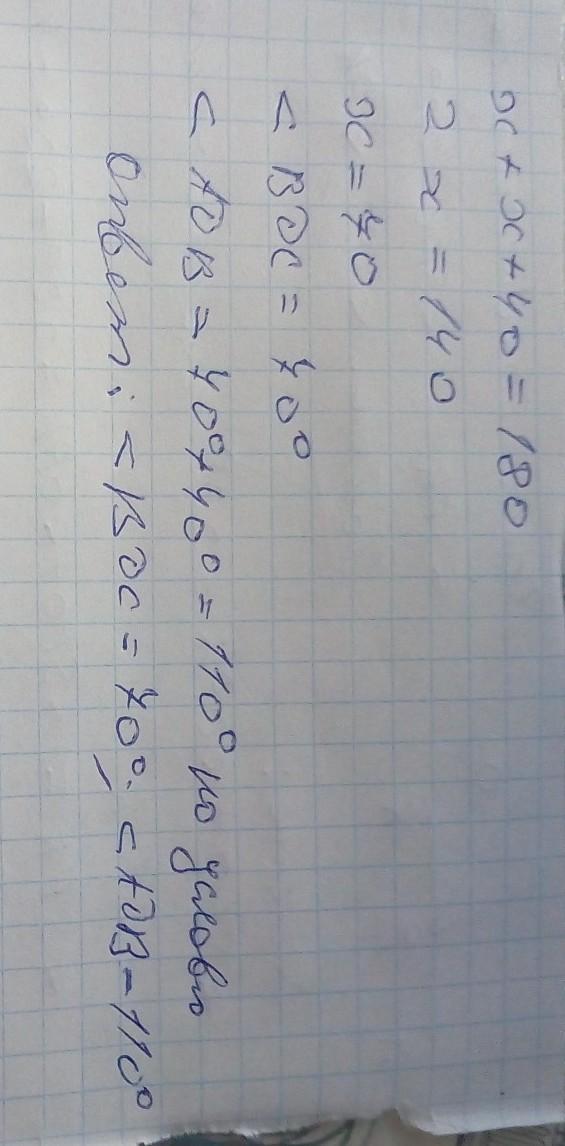 x + x + 40 = 180
2 x = 140
x = 70
< BOC = 70⁰
< AOB = 70⁰ + 40⁰ = 110⁰ по условию
Ответ: < BOC = 70⁰; < AOB - 110⁰